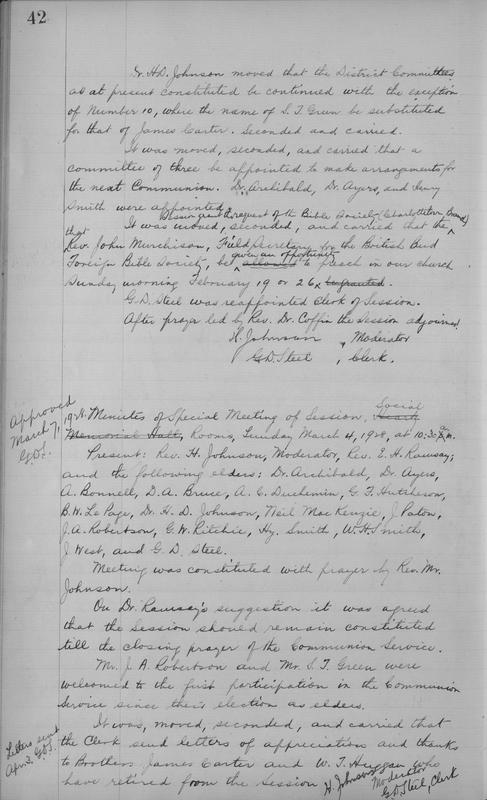 42
Dr. H.D. Johnson moved that the District Committees
as at present constituted be continued with the exception
of Number 10, where the name of S. T. Green be substituted
for that of James Carter. Seconded and carried.
It was moved, seconded, and carried that a
committee of three be appointed to make arrangements for
the next Communion. Dr. Archibald, Dr. Ayers, and Henry
Smith were appointed.
that we grant the request of the Bible Society (Charlottetown Branch)
It was moved, seconded, and carried that the
Rev. John Murchison, Field Secretary for the British and
given an opportunity
Foreign Bible Society, be allowed to preach in our church
Sunday morning February 19 or 26. be granted.
G.D. Steel was reappointed Clerk of Session.
After prayer led by Rev. Dr. Coffin the Session adjourned.
H. Johnson, Moderator
G.D. Steel, Clerk.
Approved
March 7, 1928.
G.D.S.
Minutes of Special Meeting of Session, Social
Heartz
Memorial Hall, Rooms, Sunday March 4, 1928, at 10:30 a.m.
Present: Rev. H. Johnson, Moderator, Rev. E. H. Ramsay;
and the following elders: Dr. Archibald, Dr. Ayers,
A. Bonnell, D. A. Bruce, A. C. Duchemin, G. F. Hutcheson,
B.W. LePage, Dr. H. D. Johnson, Neil MacKenzie, J. Paton,
J.A. Robertson, G.W. Ritchie, Hy. Smith, W.H. Smith,
J West, and G. D. Steel.
Meeting was constituted with prayer by Rev. Mr.
Johnson.
On Dr. Ramsay's suggestion it was agreed
that the Session should remain constituted
till the closing prayer of the Communion Service.
Mr. J. A. Robertson and Mr. S. T. Green were
welcomed to the first participation in the Communion
Service since their election as elders.
Letters sent
Apr. 3. G.D.S.
It was, moved, seconded, and carried that
the Clerk send letters of appreciation and thanks
to Brothers James Carter and W. T. Huggan who
have retired from the Session
H. Johnson Moderator
G.D. Steel, Clerk